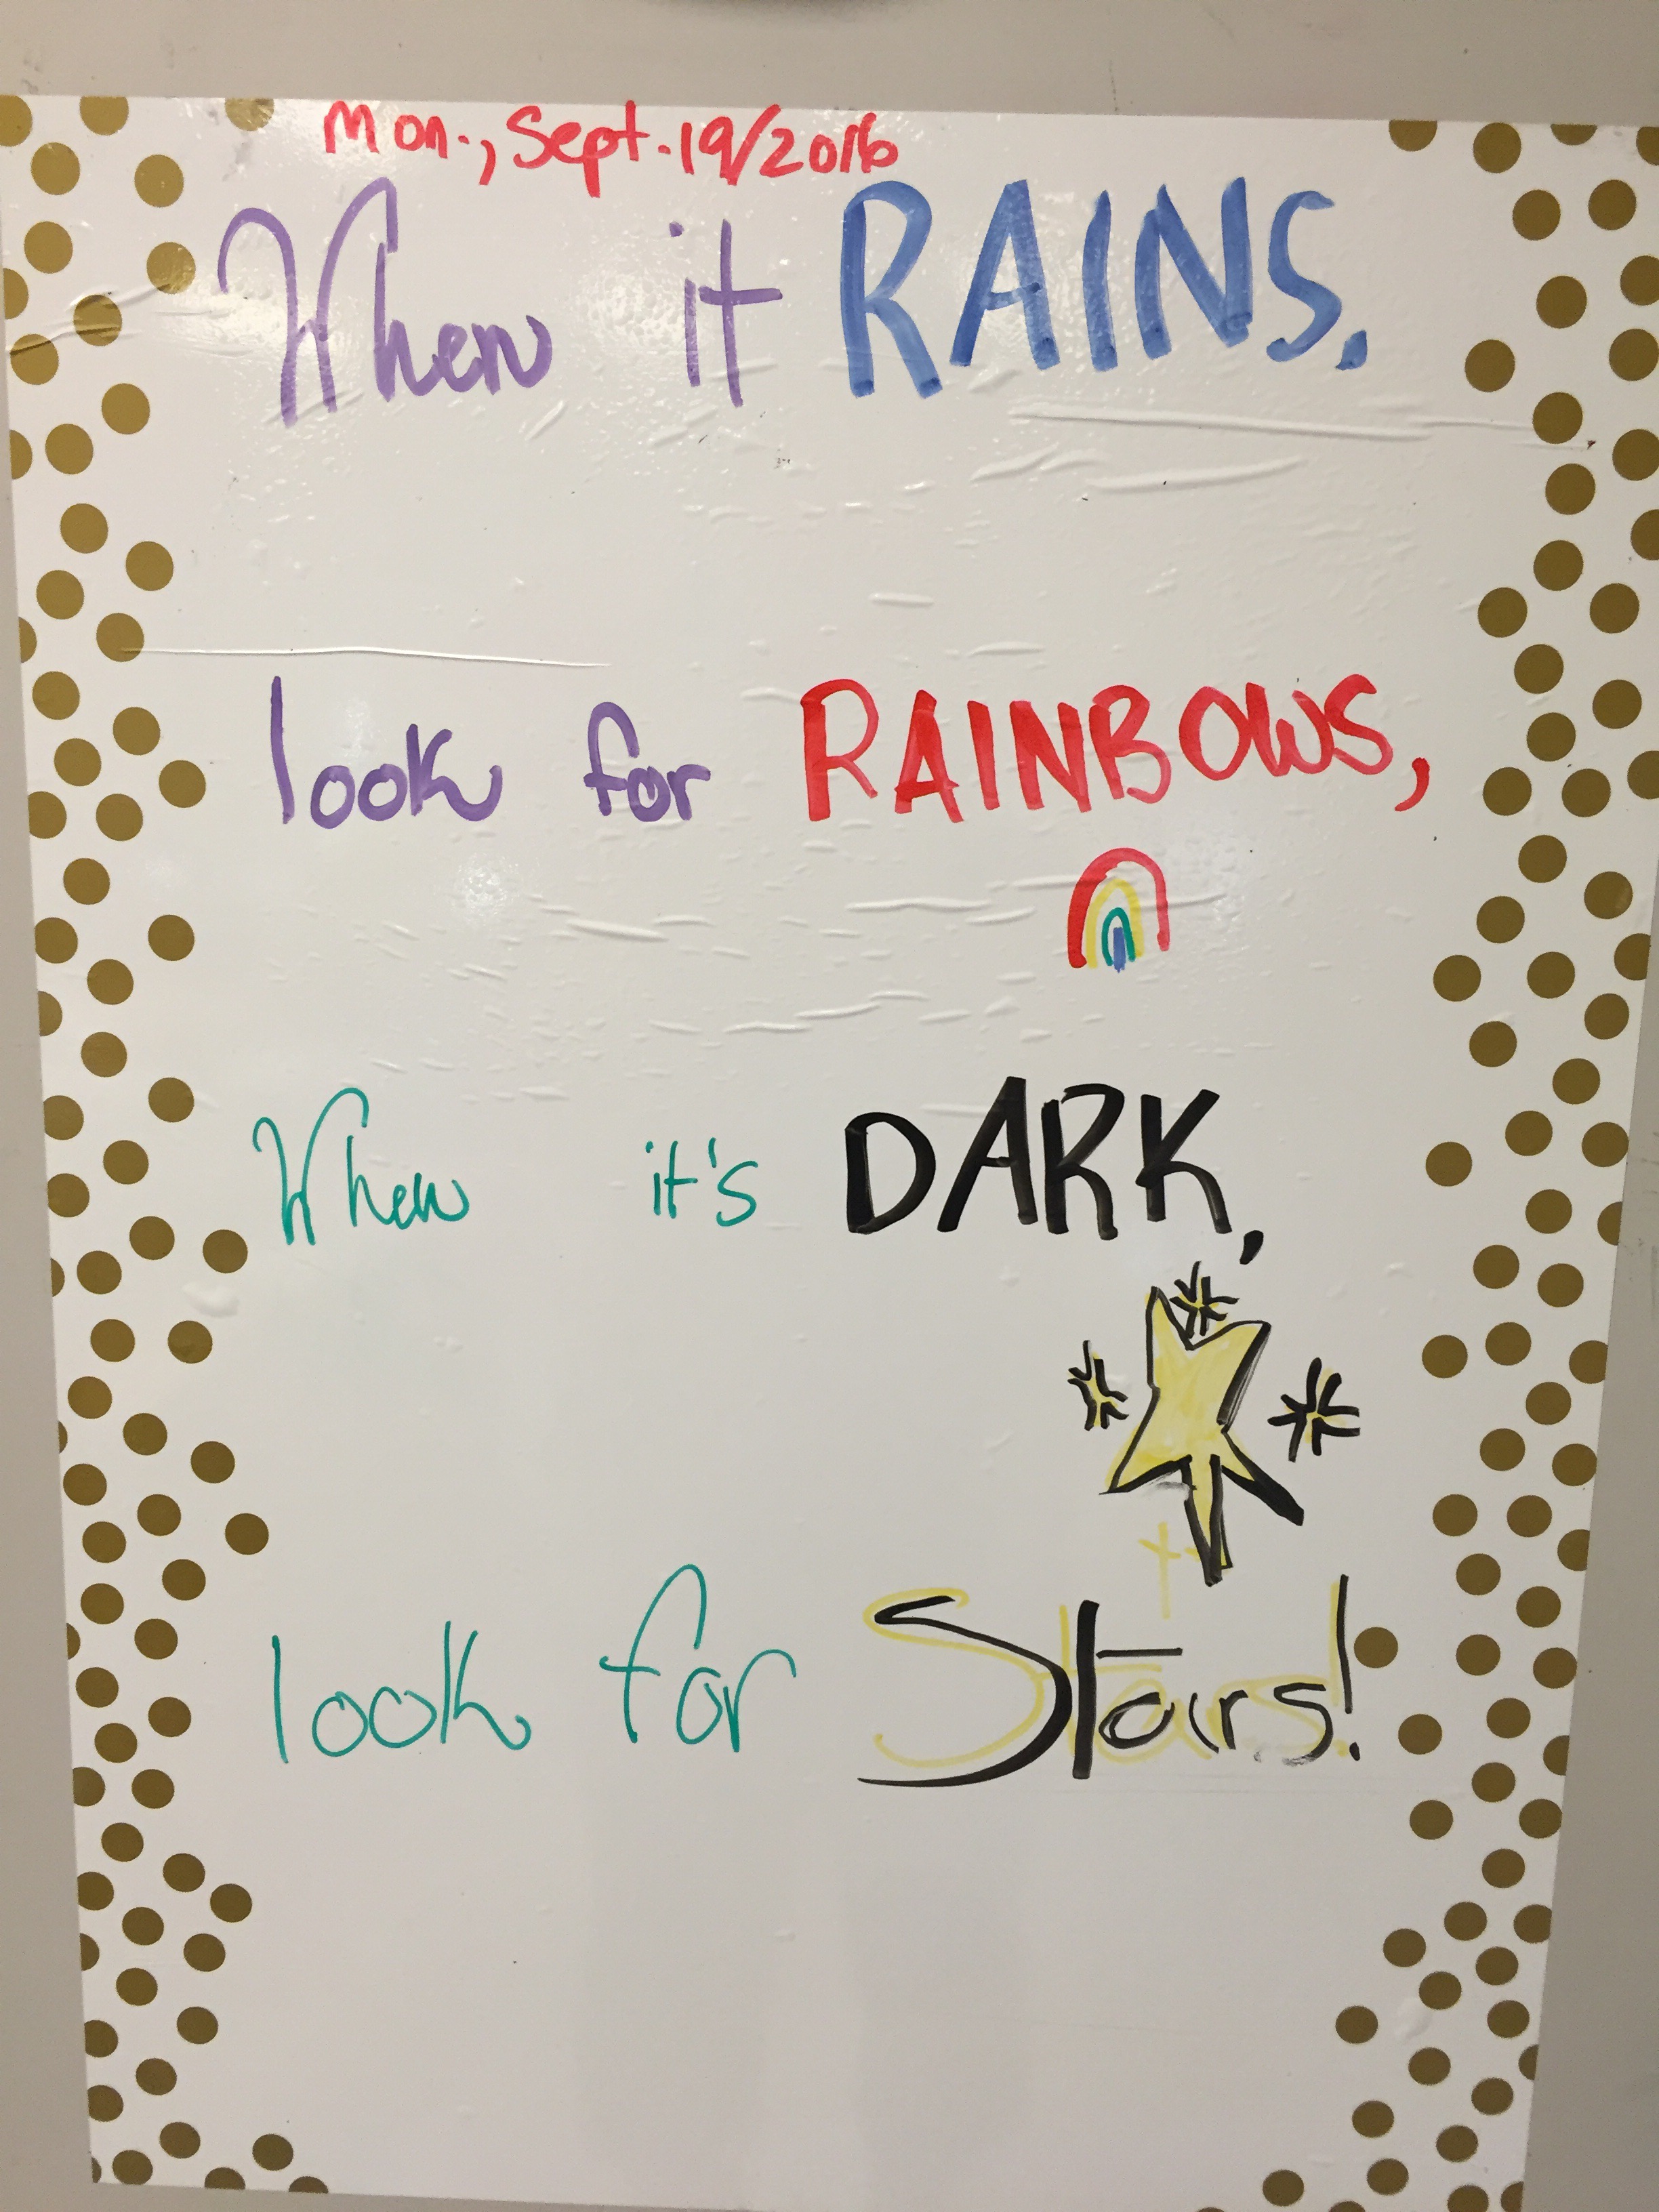 Mon., Sept. 19/2016
When it RAINS,
look for RAINBOWS,
When it's DARK,
look for Stars!